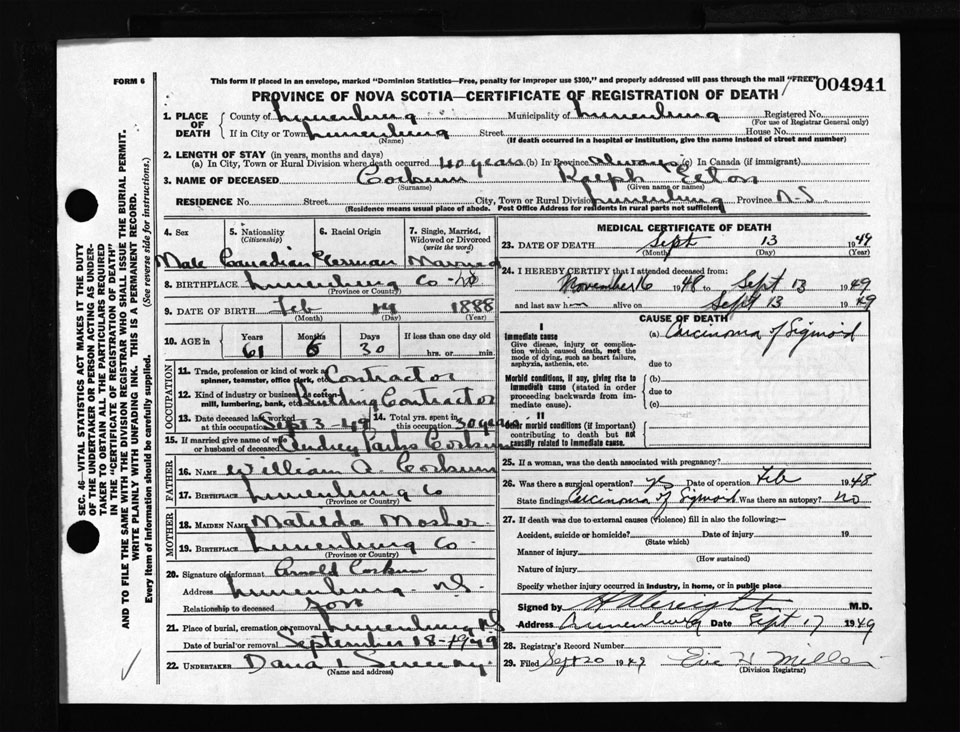 FORM 6
This form if placed in an envelope, marked "Dominion Statistics—Free, penalty for improper use $300," and properly addressed will pass through the mail "FREE"
004941
PROVINCE OF NOVA SCOTIA—CERTIFICATE OF REGISTRATION OF DEATH
1. PLACE OF DEATH
County of Lunenburg Municipality of Lunenburg Registered No.
(For use of Registrar General only)
If in City or Town Lunenburg Street House No.
(Name) (If death occurred in a hospital or institution, give the name instead of street and number)
2. LENGTH OF STAY (in years, months and days)
(a) In City, Town or Rural Division where death occurred 40 years (b) In Province always (c) In Canada (if immigrant)
3. NAME OF DECEASED Corkum Ralph
(Surname) (Given name or names)
RESIDENCE No. Street City, Town or Rural Division Lunenburg Province N-S
(Residence means usual place of abode. Post Office Address for residents in rural parts not sufficient)
4. Sex
5. Nationality (Citizenship)
6. Racial Origin
7. Single, Married, Widowed or Divorced (write the word)
Male Canadian German Married
8. BIRTHPLACE Lunenburg Co NS
(Province or Country)
9. DATE OF BIRTH Feb 14 1888
(Month) (Day) (Year)
10. AGE in Years Months Days If less than one day old
61 6 30 hrs. or min.
OCCUPATION
11. Trade, profession or kind of work as spinner, teamster, office clerk, etc. Contractor
12. Kind of industry or business, as cotton mill, lumbering, bank, etc. Building Contractor
13. Date deceased last worked at this occupation Sept 3-49
14. Total yrs. spent in this occupation 30 years
15. If married give name of wife or husband of deceased Audrey Parks Corkum
FATHER
16. NAME William A. Corkum
17. BIRTHPLACE Lunenburg Co
(Province or Country)
MOTHER
18. MAIDEN NAME Matilda Mosher
19. BIRTHPLACE Lunenburg Co.
(Province or Country)
20. Signature of informant Arnold Corkum
Address Lunenburg N.S.
Relationship to deceased Son
21. Place of burial, cremation or removal Lunenburg NS
Date of burial or removal September 18-1949
22. UNDERTAKER Dana L Sweeny
(Name and address)
MEDICAL CERTIFICATE OF DEATH
23. DATE OF DEATH Sept 13 1949
(Month) (Day) (Year)
24. I HEREBY CERTIFY that I attended deceased from:
November 16 1948 to Sept 13 1949
and last saw him alive on Sept 13 1949
CAUSE OF DEATH
I
Immediate cause
Give disease, injury or complication which caused death, not the mode of dying, such as heart failure, asphyxia, asthenia, etc.
(a) Carcinoma of Sigmoid
due to
Morbid conditions, if any, giving rise to immediate cause (stated in order proceeding backwards from immediate cause).
(b)
due to
(c)
II
Other morbid conditions (if important) contributing to death but not causally related to immediate cause.
25. If a woman, was the death associated with pregnancy?
26. Was there a surgical operation? yes Date of operation Feb 1948
State findings Carcinoma of Sigmoid Was there an autopsy? No
27. If death was due to external causes (violence) fill in also the following:—
Accident, suicide or homicide? Date of injury 19
(State which)
Manner of injury
(How sustained)
Nature of injury
Specify whether injury occurred in industry, in home, or in public place
Signed by M.D.
Address Lunenburg Date Sept 17 1949
28. Registrar's Record Number
29. Filed Sept 20 1949
(Division Registrar)
SEC. 46—VITAL STATISTICS ACT MAKES IT THE DUTY
OF THE UNDERTAKER OR PERSON ACTING AS UNDER-
TAKER TO OBTAIN ALL THE PARTICULARS REQUIRED
IN THE "CERTIFICATE OF REGISTRATION OF DEATH"
AND TO FILE THE SAME WITH THE DIVISION REGISTRAR WHO SHALL ISSUE THE BURIAL PERMIT.
WRITE PLAINLY WITH UNFADING INK. THIS IS A PERMANENT RECORD.
Every item of information should be carefully supplied. (See reverse side for instructions.)